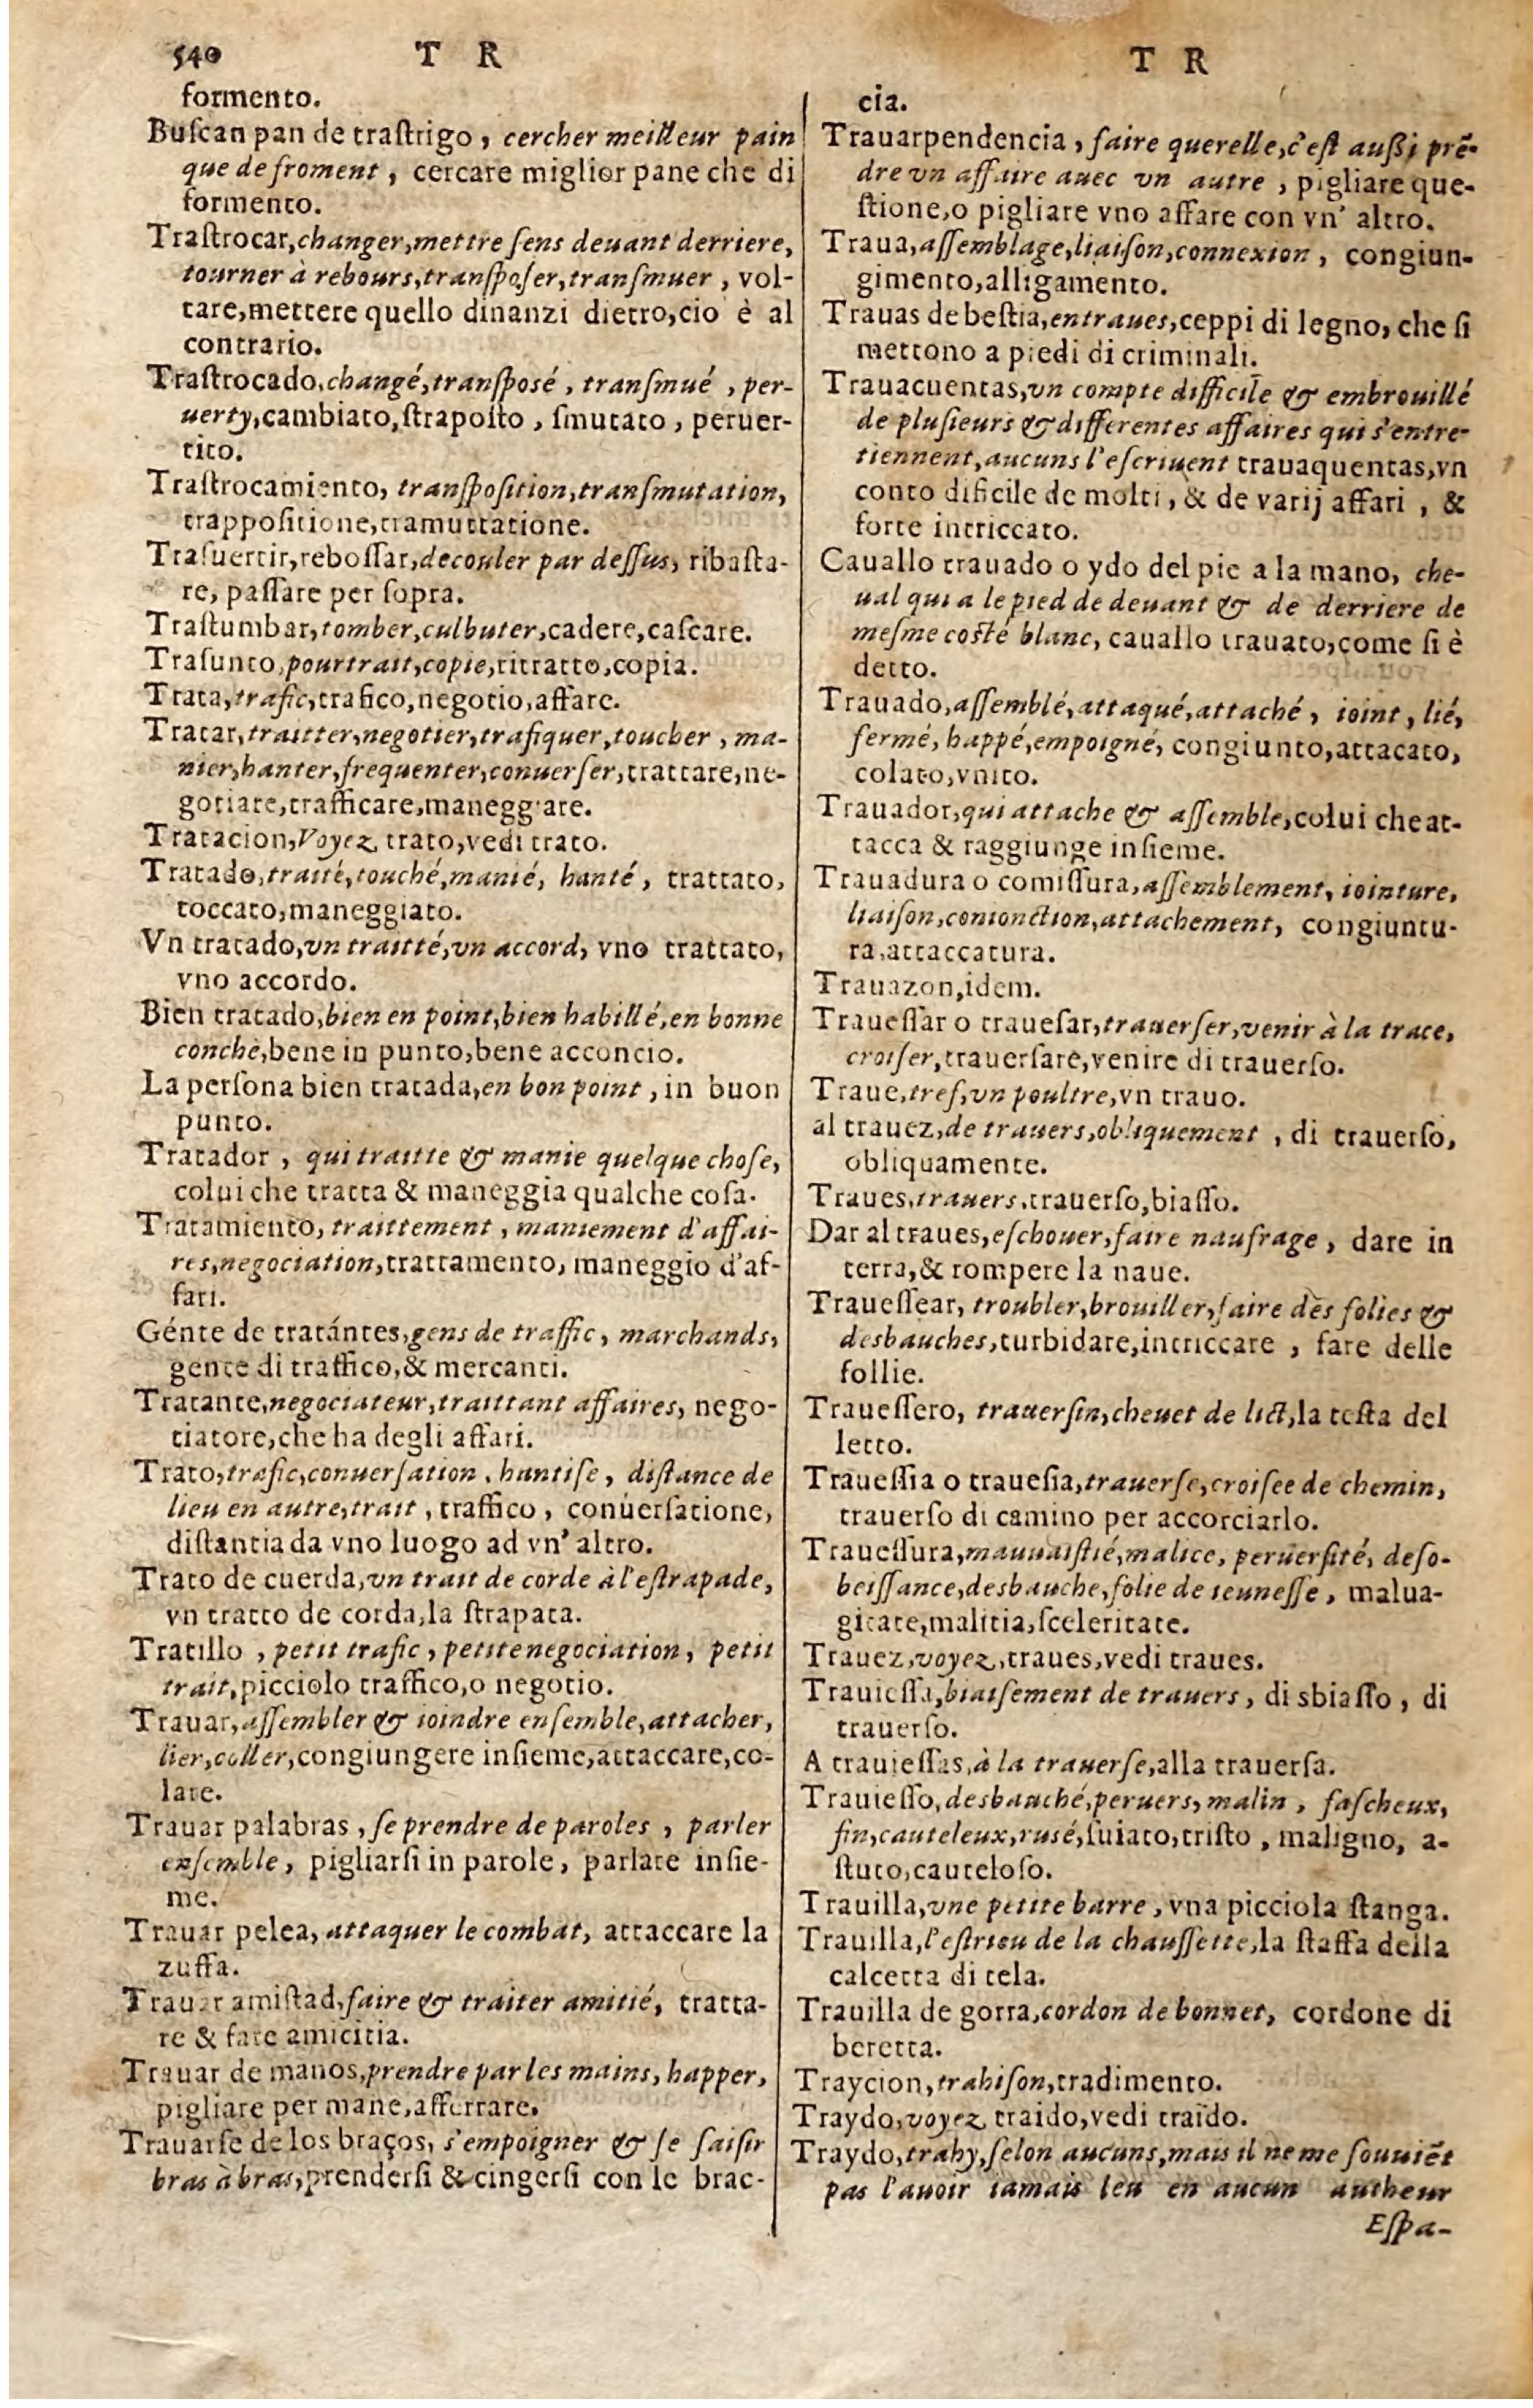 540 T R
formento.
Buſcan pan de traſtrigo, cercher meilleur pain
que de froment, cercare miglior pane che di
formento.
Traſtrocar, changer, mettre ſens deuant derriere,
tourner à rebours, tranſpoſer, tranſmuer, vol-
tare, mettere quello dinanzi dietro, cio è al
contrario.
Traſtrocado, changé, tranſposé, tranſmué, per-
uerty, cambiato, ſtrapoſto, ſmutato, peruer-
tito.
Traſtrocamiento, tranſpoſition, tranſmutation,
trappoſitione, tramuttatione.
Traſuertir, reboſſar, decouler par deſſus, ribaſta-
re, paſſare per ſopra.
Traſtumbar, tomber, culbuter, cadere, caſcare.
Traſunto, pourtrait, copie, ritratto, copia.
Trata, trafic, trafico, negotio, affare.
Tratar, traitter, negotier, trafiquer, toucher, ma-
nier, hanter, frequenter, conuerſer, trattare, ne-
gotiare, trafficare, maneggiare.
Tratacion, Voyez trato, vedi trato.
Tratado, traité, touché, manié, hanté, trattato,
toccato, maneggiato.
Vn tratado, vn traitté, vn accord, vno trattato,
vno accordo.
Bien tratado, bien en point, bien habillé, en bonne
conche, bene in punto, bene acconcio.
La perſona bien tratada, en bon point, in buon
punto.
Tratador, qui traitte & manie quelque choſe,
colui che tratta & maneggia qualche coſa.
Tratamiento, traittement, maniement d'affai-
res, negociation, trattamento, maneggio d'af-
fari.
Génte de tratántes, gens de traffic, marchands,
gente di traffico, & mercanti.
Tratante, negociateur, traittant affaires, nego-
tiatore, che ha degli affari.
Trato, trafic, conuerſation, hantiſe, diſtance de
lieu en autre, trait, traffico, conuerſatione,
diſtantia da vno luogo ad vn' altro.
Trato de cuerda, vn trait de corde à l'eſtrapade,
vn tratto de corda, la ſtrapata.
Tratillo, petit trafic, petite negociation, petit
trait, picciolo traffico, o negotio.
Trauar, aſſembler & ioindre enſemble, attacher,
lier, coller, congiungere inſieme, attaccare, co-
lare.
Trauar palabras, ſe prendre de paroles, parler
enſemble, pigliarſi in parole, parlare inſie-
me.
Trauar pelea, attaquer le combat, attaccare la
zuffa.
Trauar amiſtad, faire & traiter amitié, tratta-
re & fare amicitia.
Trauar de manos, prendre par les mains, happer,
pigliare per mane, afferrare.
Trauarſe de los braços, s'empoigner & ſe ſaiſir
bras à bras, prenderſi & cingerſi con le brac-
T R
cia.
Trauarpendencia, faire querelle, c'eſt auſſi prē-
dre vn affaire auec vn autre, pigliare que-
ſtione, o pigliare vno affare con vn' altro.
Traua, aſſemblage, liaiſon, connexion, congiun-
gimento, alligamento.
Trauas de beſtia, entraues, ceppi di legno, che ſi
mettono a piedi di criminali.
Trauacuentas, vn compte difficile & embrouillé
de pluſieurs & differentes affaires qui s'entre-
tiennent, aucuns l'eſcriuent trauaquentas, vn
conto dificile de molti, & de varij affari, &
forte intriccato.
Cauallo trauado o ydo del pie a la mano, che-
ual qui a le pied de deuant & de derriere de
meſme coſté blanc, cauallo trauato, come ſi è
detto.
Trauado, aſſemblé, attaqué, attaché, ioint, lié,
fermé, happé, empoigné, congiunto, attacato,
colato, vnito.
Trauador, qui attache & aſſemble, colui che at-
tacca & raggiunge inſieme.
Trauadura o comiſſura, aſſemblement, iointure,
liaiſon, conionction, attachement, congiuntu-
ra, attaccatura.
Trauazon, idem.
Traueſſar o traueſar, trauerſer, venir à la trace,
croiſer, trauerſare, venire di trauerſo.
Traue, treſ, vn poultre, vn trauo.
al trauez, de trauers, obliquement, di trauerſo,
obliquamente.
Traues, trauers, trauerſo, biaſſo.
Dar al traues, eſchouer, faire naufrage, dare in
terra, & rompere la naue.
Traueſſear, troubler, brouiller, faire des folies &
desbauches, turbidare, intriccare, fare delle
follie.
Traueſſero, trauerſin, cheuet de lict, la teſta del
letto.
Traueſſia o traueſia, trauerſe, croiſee de chemin,
trauerſo di camino per accorciarlo.
Traueſſura, mauuaiſtié, malice, peruerſité, deſo-
beiſſance, desbauche, folie de ieuneſſe, malua-
gitate, malitia, ſceleritate.
Trauez, voyez, traues, vedi traues.
Trauieſſa, biaiſement de trauers, di sbiaſſo, di
trauerſo.
A trauieſſas, à la trauerſe, alla trauerſa.
Trauieſſo, desbauché, peruers, malin, faſcheux,
fin, cauteleux, rusé, ſuiato, triſto, maligno, a-
ſtuto, cauteloſo.
Trauilla, vne petite barre, vna picciola ſtanga.
Trauilla, l'eſtrieu de la chauſſette, la ſtaffa della
calcetta di tela.
Trauilla de gorra, cordon de bonnet, cordone di
beretta.
Traycion, trahiſon, tradimento.
Traydo, voyez traido, vedi traido.
Traydo, trahy, ſelon aucuns, mais il ne me ſouuiēt
pas l'auoir iamais leu en aucun autheur
Eſpa-